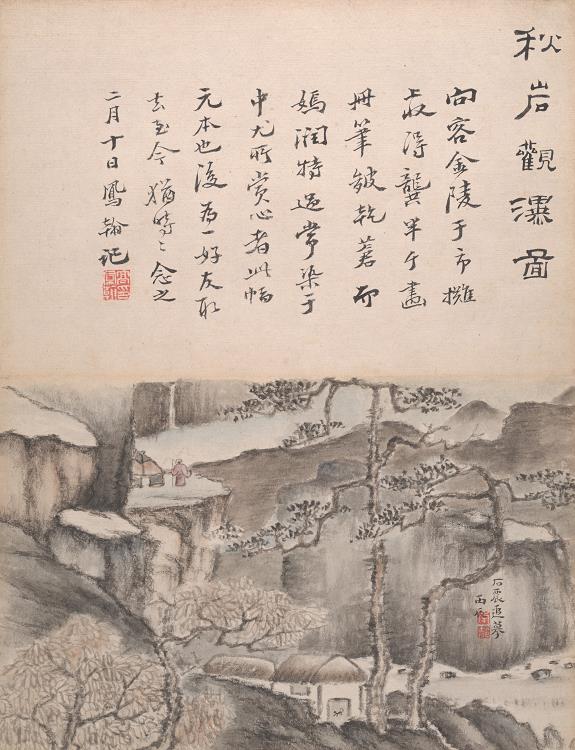 秋岩觀瀑圖
向客金陵于市攤
收得龔半千畫
冊筆皴乾蒼而
嫣潤特過常染于
中尤所賞心者此幅
元本也後為一好友取
去至今猶時〻念之
二月十日鳳翰記
追摹